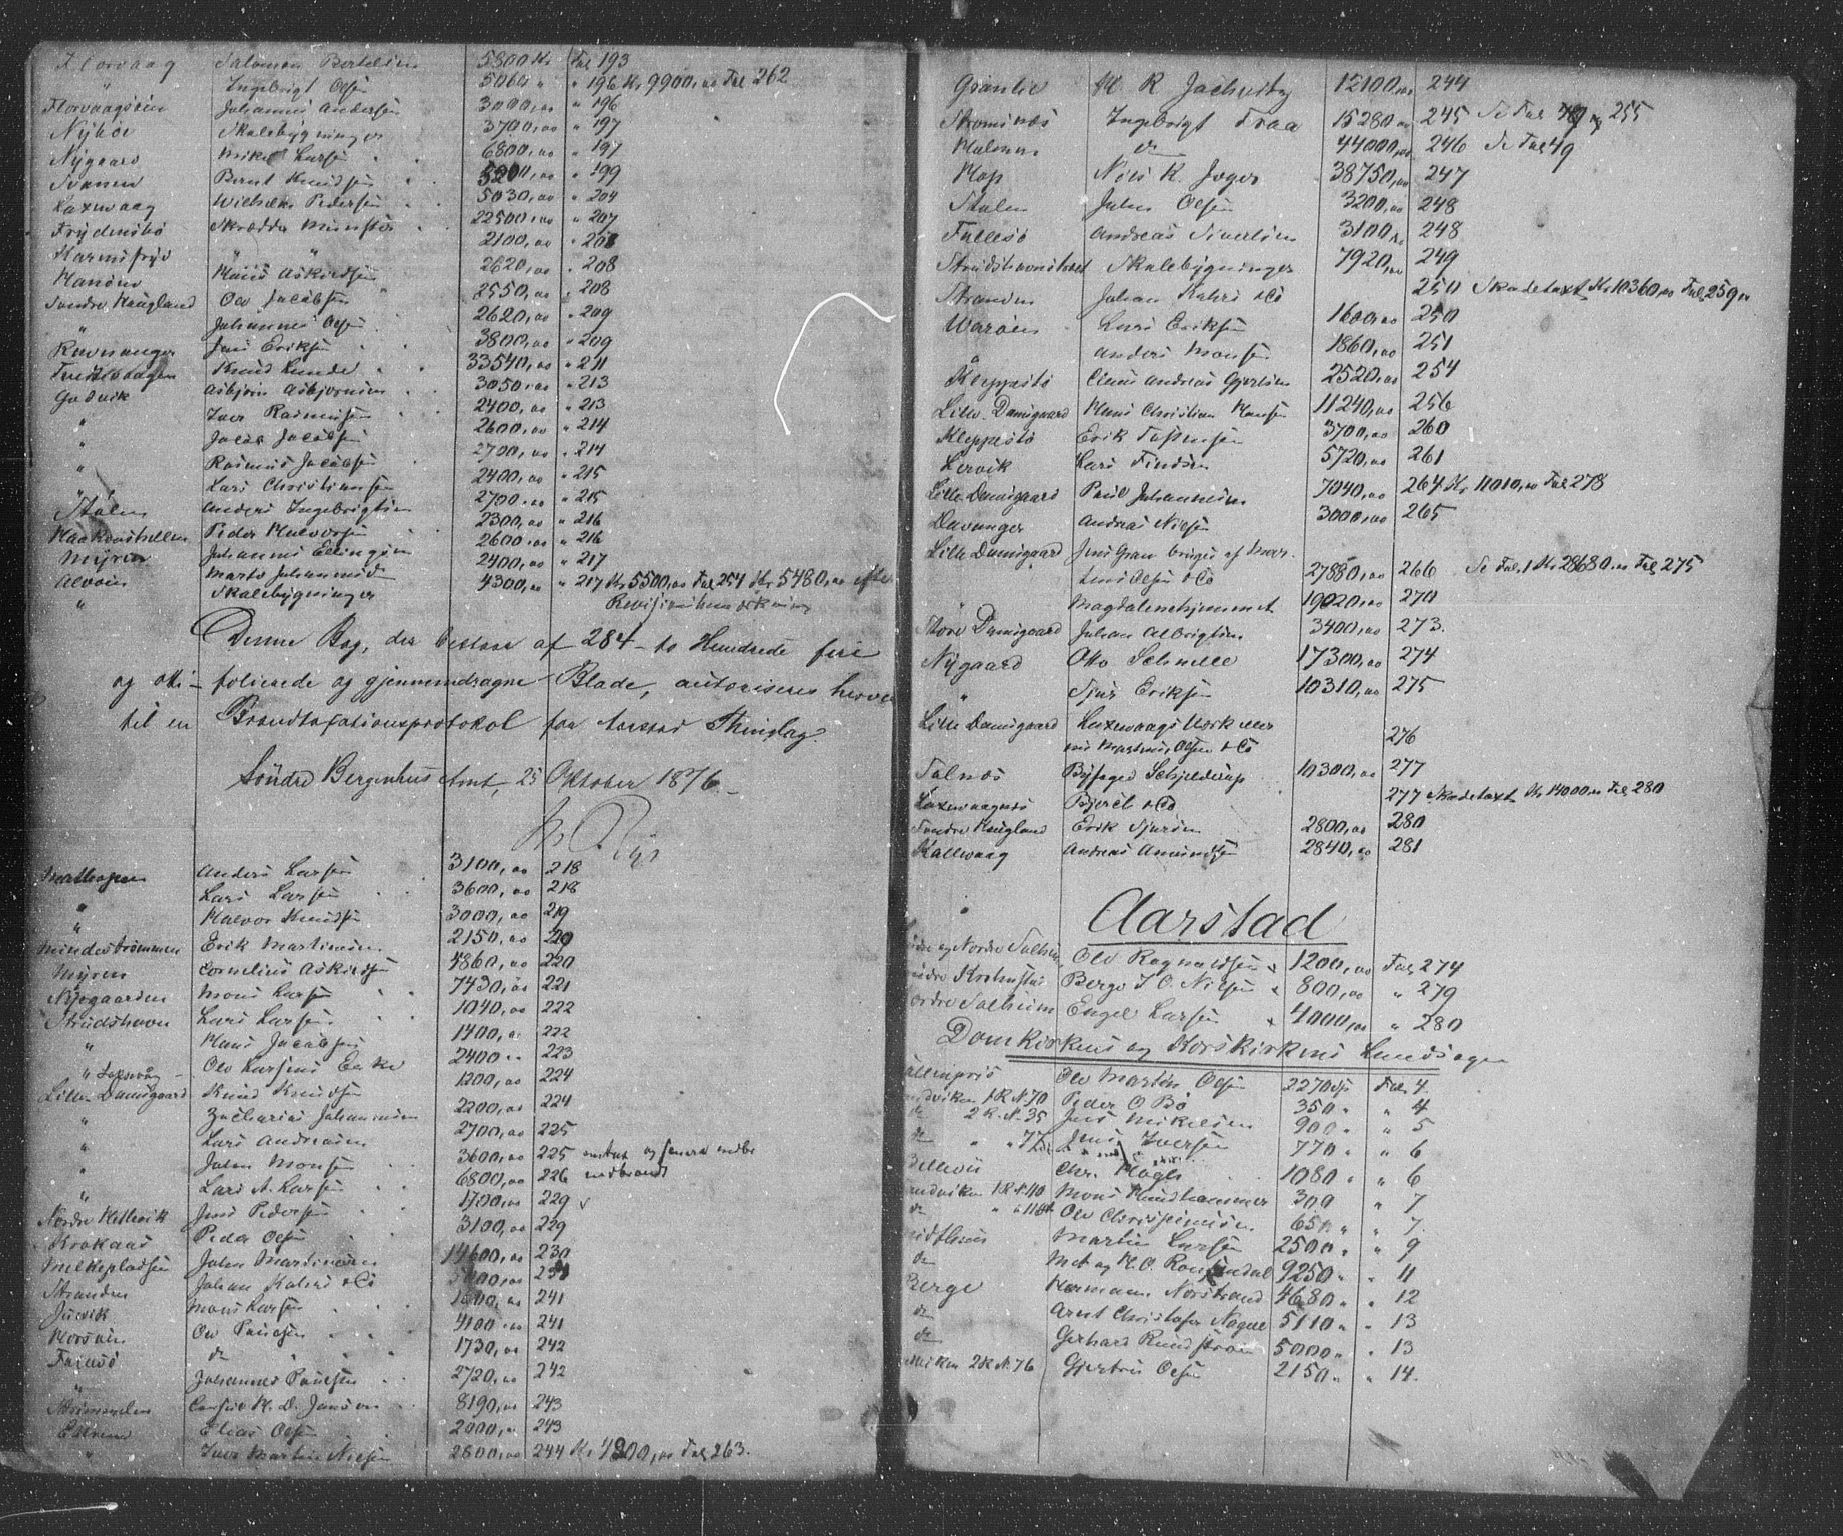 Florvaag Salomon Bertelsen 5800 Kr Fol 193
" Ingebrigt Olsen 5060 " " 196 Kr 9900,00 Fol 262
Florvaagsöen Johannes Andersen 3000,00 " 196
Nyböe Skolebygninger 3700,00 " 197
Nygaard Mikel Larsen 6800,00 " 197
Svanen Bernt Knudsen 5200,00 " 199
Laxevaag Wilhelm Pedersen 5030,00 " 204
Frydensbö Skrædder Münster 22500,00 " 207
Karmsfryd " " 2100,00 " 208
Hanöen Hans Askildsen 2620,00 " 208
Söndre Haugland Ole Jacobsen 2550,00 " 208
" Johannes Olsen 2620,00 " 209
Ravnanger Jens Eriksen 3800,00 " 209
Knud Lunde 33540,00 " 211
Godvik Asbjörn Asbjörnsen 3050,00 " 213
" Iver Rasmussen 2400,00 " 213
" Jacob Jacobsen 2600,00 " 214
" Rasmus Jacobsen 2700,00 " 214
" Lars Christiansen 2400,00 " 215
Stölen Anders Ingebrigtsen 2700,00 " 215
Haakonshellen Peder Halvorsen 2300,00 " 216
Myren Johannes Ellingsen 2600,00 " 216
Alvöen Marto Johannesd 2400,00 " 217
" Skolebygninger 4300,00 " 217 Kr 5500,00 Fol 254 Kr 5480,00 efter
Revisionsbemærkning
Denne Bog, der bestaar af 284 - to Hundrede fire
og otti - folierede og gjennemdragne Blade, autoriseres herved
til en Brandtaxationsprotokol for Aarstad Thinglag.
Söndre Bergenhus Amt, 25 Oktober 1876.
Mathopen Anders Larsen 3100,00 218
" Lars Larsen 3600,00 218
" Halvor Knudsen 3000,00 219
Mindeströmmen Erik Martinsen 2150,00 219
Myren Cornelius Askildsen 4860,00 220
Nygaarden Mons Larsen 7430,00 221
Strudshavn Lars Larsen 1040,00 222
" Hans Jacobsen 1400,00 222
" Laxevåg Ole Larsens Enke 2400 " 223
Lille Damsgaard Knud Knudsen 1200,00 224
" Zacharias Johannesen 2200,00 224
" Lars Andreasen 2700,00 225
" Johan Monsen 3600,00 225 omtax og senere nedbr
" Lars A. Larsen 6800,00 226 nedbrændt
Nordre Hetlevik Jens Pedersen 1700,00 229
Krokaas Peder Olsen 3100,00 229
Melkepladsen Johan Martinsen 14600,00 230
Stranden Johan Kahrs & Co 231
Juvik Mons Larsen 1600,00 241
Horsöen Ole Paulsen 4100,00 241
do 1730,00 242
" Johannes Paulsen 2720,00 242
Strömmelen Consul H. D. Jansen 8190,00 243
Elias Olsen 2000,00 243
" Iver Martin Nielsen 2800,00 244 Kr 4300,00 Fol 263.
Grönlie M R Jachwitz 12100,00 244
Strömsnæs Ingebrigt Fraa 15280,00 245 Se Fol 49 og 255
Holmen do 44000,00 246 Se Fol 49
Hop Nils K. Jæger 38750,00 247
Stölen Johan Olsen 3200,00 248
Follesö Andreas Sivertsen 3100,00 248
Strudshavnstræet Skolebygninger 7920,00 249
Stranden Johan Kahrs & Co 250 Skadetaxt Kr 10360,00 Fol 259
Waröen Lars Eriksen 1600,00 250
" Anders Monsen 1860,00 251
Kleppestö Claus Andreas Gjertsen 2520,00 254
Lille Damsgaard Hans Christian Hansen 11240,00 256
Kleppestö Erik Tostensen 3700,00 260
Lervik Lars Findsen 5720,00 261
Lille Damsgaard Paul Johannesen 7040,00 264 Kr 11010,00 Fol 278
Davanger Andreas Nielsen 3000,00 265
Lille Damsgaard Jens Gran bruges af Mar-
tens Olsen & Co 27880,00 266 Se Fol 1 Kr 28680,00 Fol 275
" Magdalenehjemmet 19020,00 270
Store Damsgaard Johan Albrigtsen 3400,00 273.
Nygaard Otto Schnelle 17300,00 274
" Sjur Eriksen 10310,00 275
Lille Damsgaard Laxevaags Værk ved
Martens, Olsen & Co 276
Solnæs Byfoged Schjelderup 10300,00 277
Laxevaagnæs Bjerck & Co 277 Skadetaxt Kr 14000,00 Fol 280
Söndre Haugland Erik Sjursen 2800,00 280
Hallevaag Andreas Amundsen 2840,00 281
Aarstad
og Nordre Solheim Ole Rognaldsen 1200,00 Fol 274
Kronstad Berge T O. Nilsen 800,00 " 279
ordre Solheim Engel Larsen 4000,00 " 280
Domkirkens og Korskirkens Landsogn
allenpris Ole Martin Olsen 2270 Fol 4.
ndviken 1 R N. 70 Peder O Bö 350 " " 4
do 2 R. N. 35 Jens Mikelsen 900 " " 5
do " " 77 Jens Iversen 770 " " 6
Bellevue Chr. Magls 1080 " " 6
ndviken 1 R N. 110 Mons Hundhammer 300 " 7
do " " 114 Ole Chrispinusen 650 " " 7.
Martin Larsen 2500 " " 9
do M. og H. O. Rosendal 9250 " " 11
Berge Hermann Norstrand 4680 " " 12
do Arnt Christofer Nagel 5110 " " 13
do Gerhard Rundström 5000 " " 13
viken 2 R N. 76 Gjertrui Olsen 2150 " " 14.